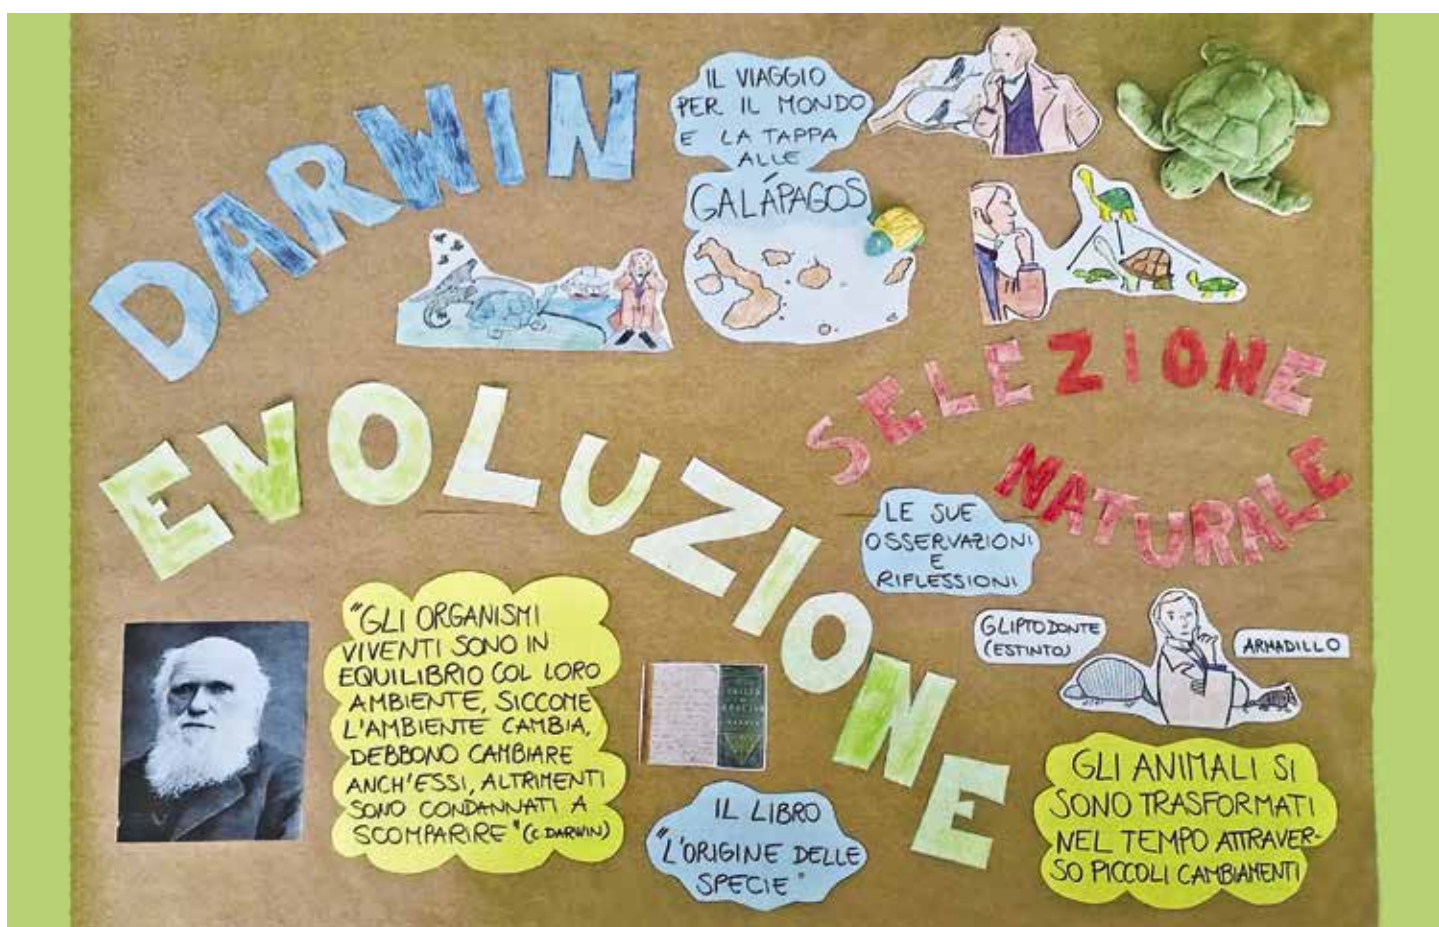 DARWIN
IL VIAGGIO
PER IL MONDO
E LA TAPPA
ALLE
GALÁPAGOS
EVOLUZIONE
SELEZIONE
NATURALE
LE SUE
OSSERVAZIONI
E
RIFLESSIONI
GLIPTODONTE
(ESTINTO)
ARMADILLO
"GLI ORGANISMI
VIVENTI SONO IN
EQUILIBRIO COL LORO
AMBIENTE, SICCOME
L'AMBIENTE CAMBIA,
DEBBONO CAMBIARE
ANCH'ESSI, ALTRIMENTI
SONO CONDANNATI A
SCOMPARIRE" (C. DARWIN)
IL LIBRO
"L'ORIGINE DELLE
SPECIE"
GLI ANIMALI SI
SONO TRASFORMATI
NEL TEMPO ATTRAVER-
SO PICCOLI CAMBIAMENTI